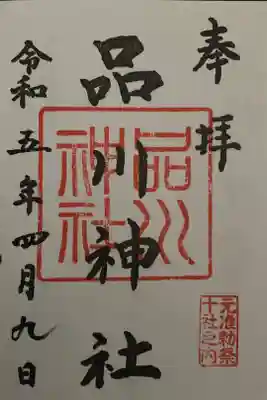 奉拝
品川神社
品川神社
元准勅祭
十社之内
令和五年四月九日